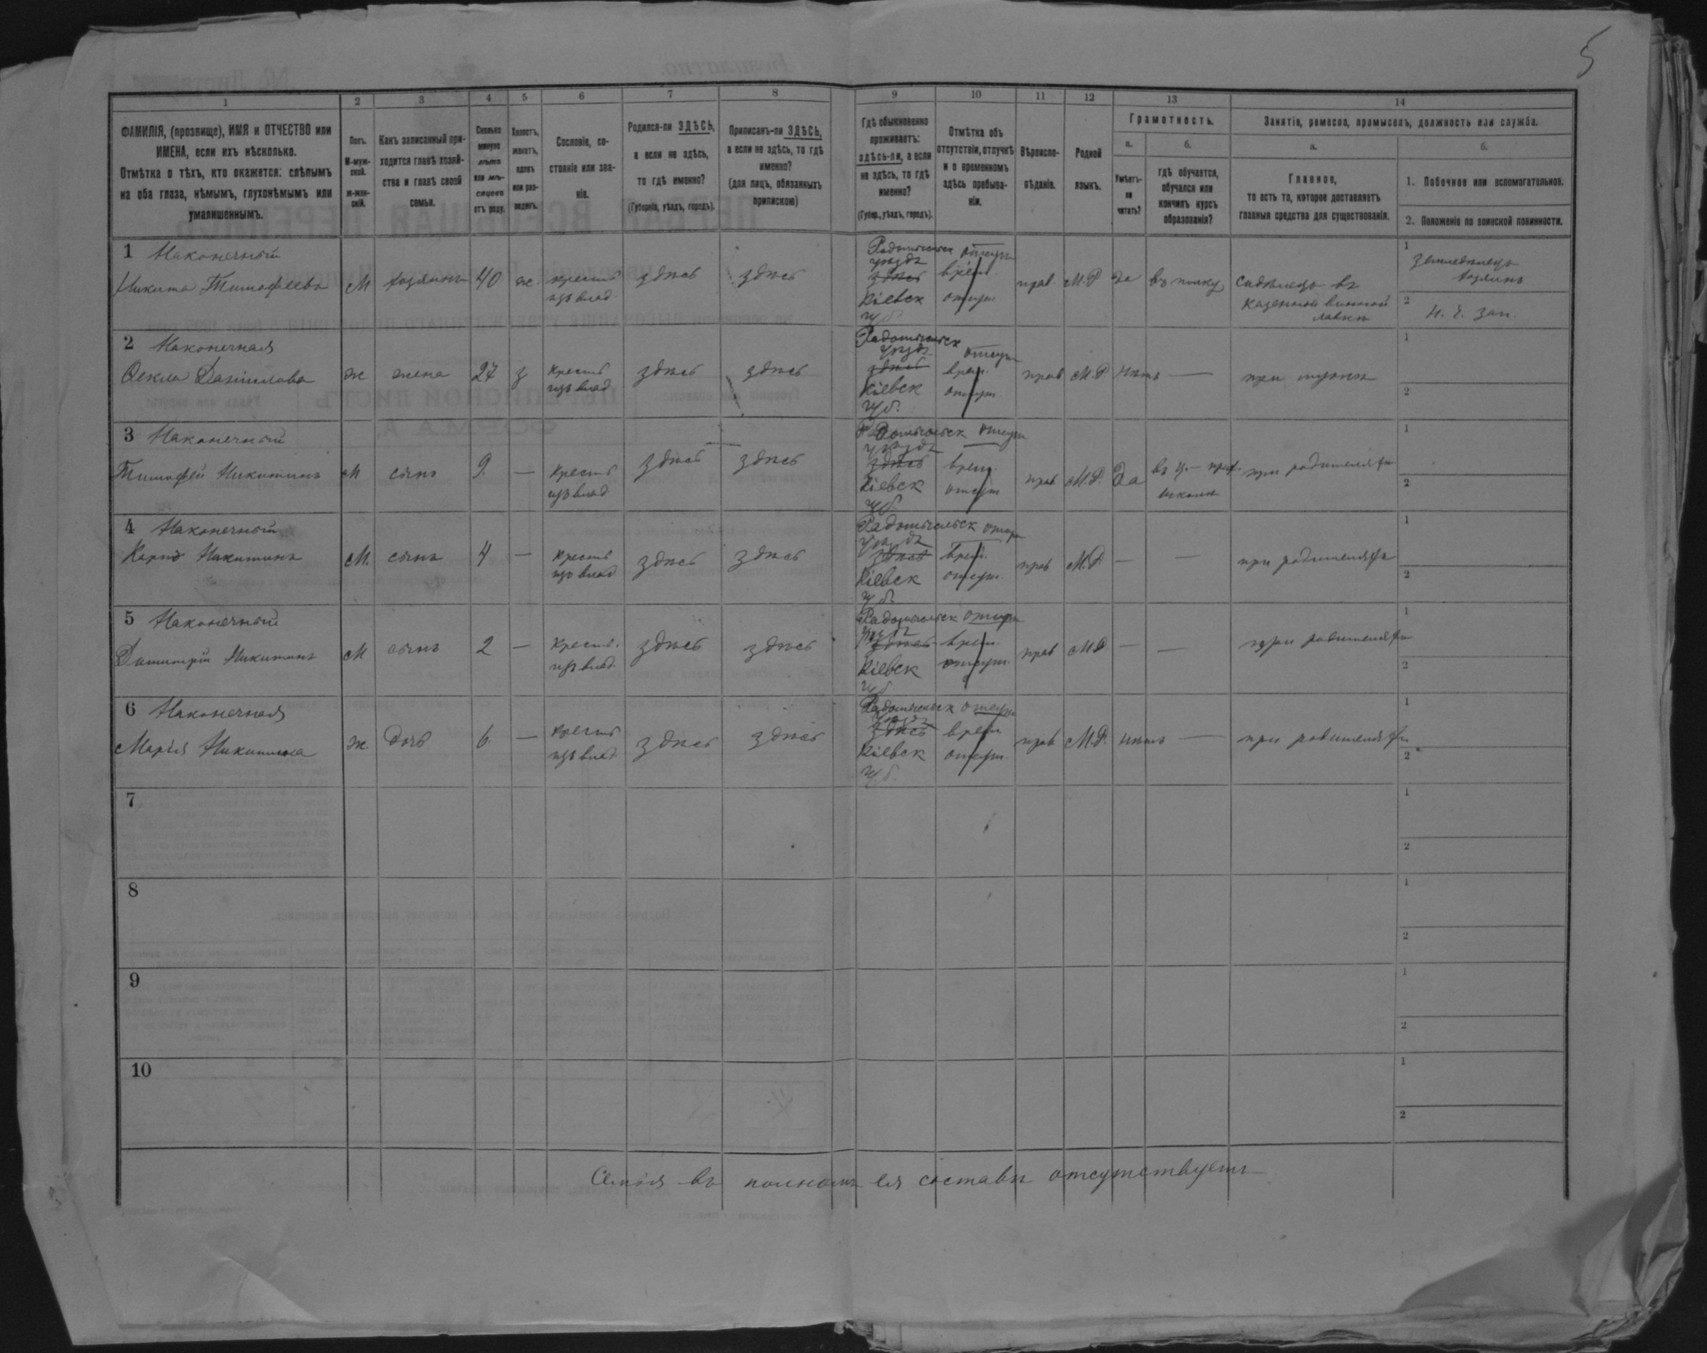 5
1 2 3 4 5 6 7 8 9 10 11 12 13 14
ФАМИЛІЯ, (прозвище), ИМЯ и ОТЧЕСТВО или
ИМЕНА, если ихъ нѣсколько.
Отмѣтка о тѣхъ, кто окажется: слѣпымъ
на оба глаза, нѣмымъ, глухонѣмымъ или
умалишеннымъ.
Полъ.
М-муж-
ской.
ж-жен-
скій.
Какъ записанный при-
ходится главѣ хозяй-
ства и главѣ своей
семьи.
Сколько
минуло
лѣтъ
или мѣ-
сяцевъ
отъ роду.
Холостъ,
женатъ,
вдовъ
или раз-
веденъ.
Сословіе, со-
стояніе или зва-
ніе.
Родился-ли ЗДѢСЬ,
а если не здѣсь,
то гдѣ именно?
(Губернія, уѣздъ, городъ).
Приписанъ-ли ЗДѢСЬ,
а если не здѣсь, то гдѣ
именно?
(для лицъ, обязанныхъ
припискою)
Гдѣ обыкновенно
проживаетъ:
здѣсь-ли, а если
не здѣсь, то гдѣ
именно?
(Губер., уѣздъ, городъ).
Отмѣтка объ
отсутствіи, отлучкѣ
и о временномъ
здѣсь пребыва-
ніи.
Вѣроиспо-
вѣданіе.
Родной
языкъ.
Грамотность.
а.
Умѣетъ-
ли
читать?
б.
гдѣ обучается,
обучался или
кончилъ курсъ
образованія?
Занятіе, ремесло, промыселъ, должность или служба.
а.
Главное,
то есть то, которое доставляетъ
главныя средства для существованія.
б.
1. Побочное или вспомогательное.
2. Положеніе по воинской повинности.
1 Наконечный
Никита Тимофеевъ М хозяинъ 40 ж. крестьян. изъ влад. здѣсь здѣсь
Радомысльск уѣздъ здѣсь Кіевск губ.
отсут. врем. отсут.
прав. М.Р да въ полку
Сидѣлецъ въ
казенной винной
лавкѣ
1 земледѣлецъ
хозяинъ
2 Н. ч. зап.
2 Наконечная
Ѳекла Данилова ж жена 27 з крестьян. изъ влад. здѣсь здѣсь
Радомысльск уѣздъ здѣсь Кіевск губ.
отсут. врем. отсут.
прав М.Р нѣтъ — при мужѣ
1
2
3 Наконечный
Тимофей Никитинъ М сынъ 9 — крестьян. изъ влад здѣсь здѣсь
Радомысльск уѣздъ здѣсь Кіевск губ.
отсут врем. отсут
прав М.Р. Да въ ц.-прих. школѣ при родителяхъ
1
2
4 Наконечный
Никитинъ М. сынъ 4 — крестьян. изъ влад здѣсь здѣсь
Радомысльск уѣздъ здѣсь Кіевск губ.
отсут врем. отсут.
прав М.Р. — — при родителяхъ
1
2
5 Наконечный
Димитрій Никитинъ М сынъ 2 — крестьян. изъ влад здѣсь здѣсь
Радомысльск уѣздъ здѣсь Кіевск губ
отсут врем. отсут.
прав М.Р — — при родителяхъ
1
2
6 Наконечная
Марія Никитина ж. дочь 6 — крестьян изъ влад здѣсь здѣсь
Радомысльск уѣздъ здѣсь Кіевск губ.
отсут врем отсут.
прав М.Р. нѣтъ — при родителяхъ
1
2
7
1
2
8
1
2
9
1
2
10
1
2
Семья въ полномъ ея составѣ отсутствуетъ